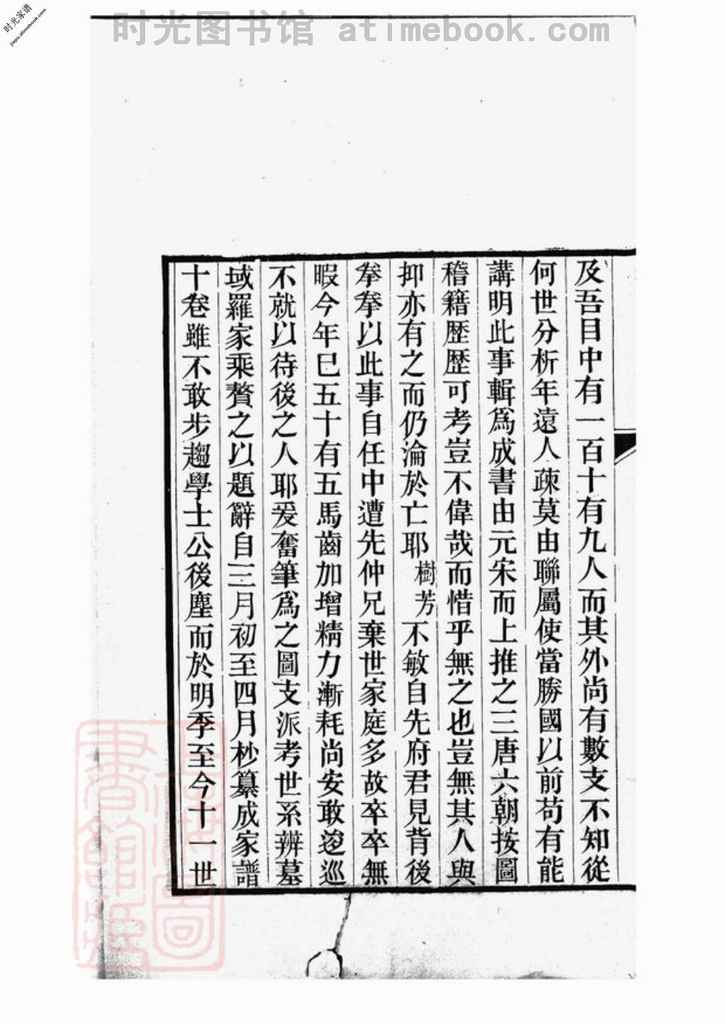 时光图书馆 atimebook.com
时光家谱
及吾目中有一百十有九人而其外尚有數支不知從
何世分析年遠人疎莫由聯屬使當勝國以前苟有能
講明此事輯爲成書由元宋而上推之三唐六朝按圖
稽籍歷歷可考豈不偉哉而惜乎無之也豈無其人與
抑亦有之而仍淪於亡耶樹芳不敏自先府君見背後
拳拳以此事自任中遭先仲兄棄世家庭多故卒卒無
暇今年巳五十有五馬齒加增精力漸耗尚安敢逡巡
不就以待後之人耶爰奮筆爲之圖支派考世系辨墓
域羅家乘贅之以題辭自三月初至四月杪纂成家譜
十卷雖不敢步趨學士公後塵而於明季至今十一世